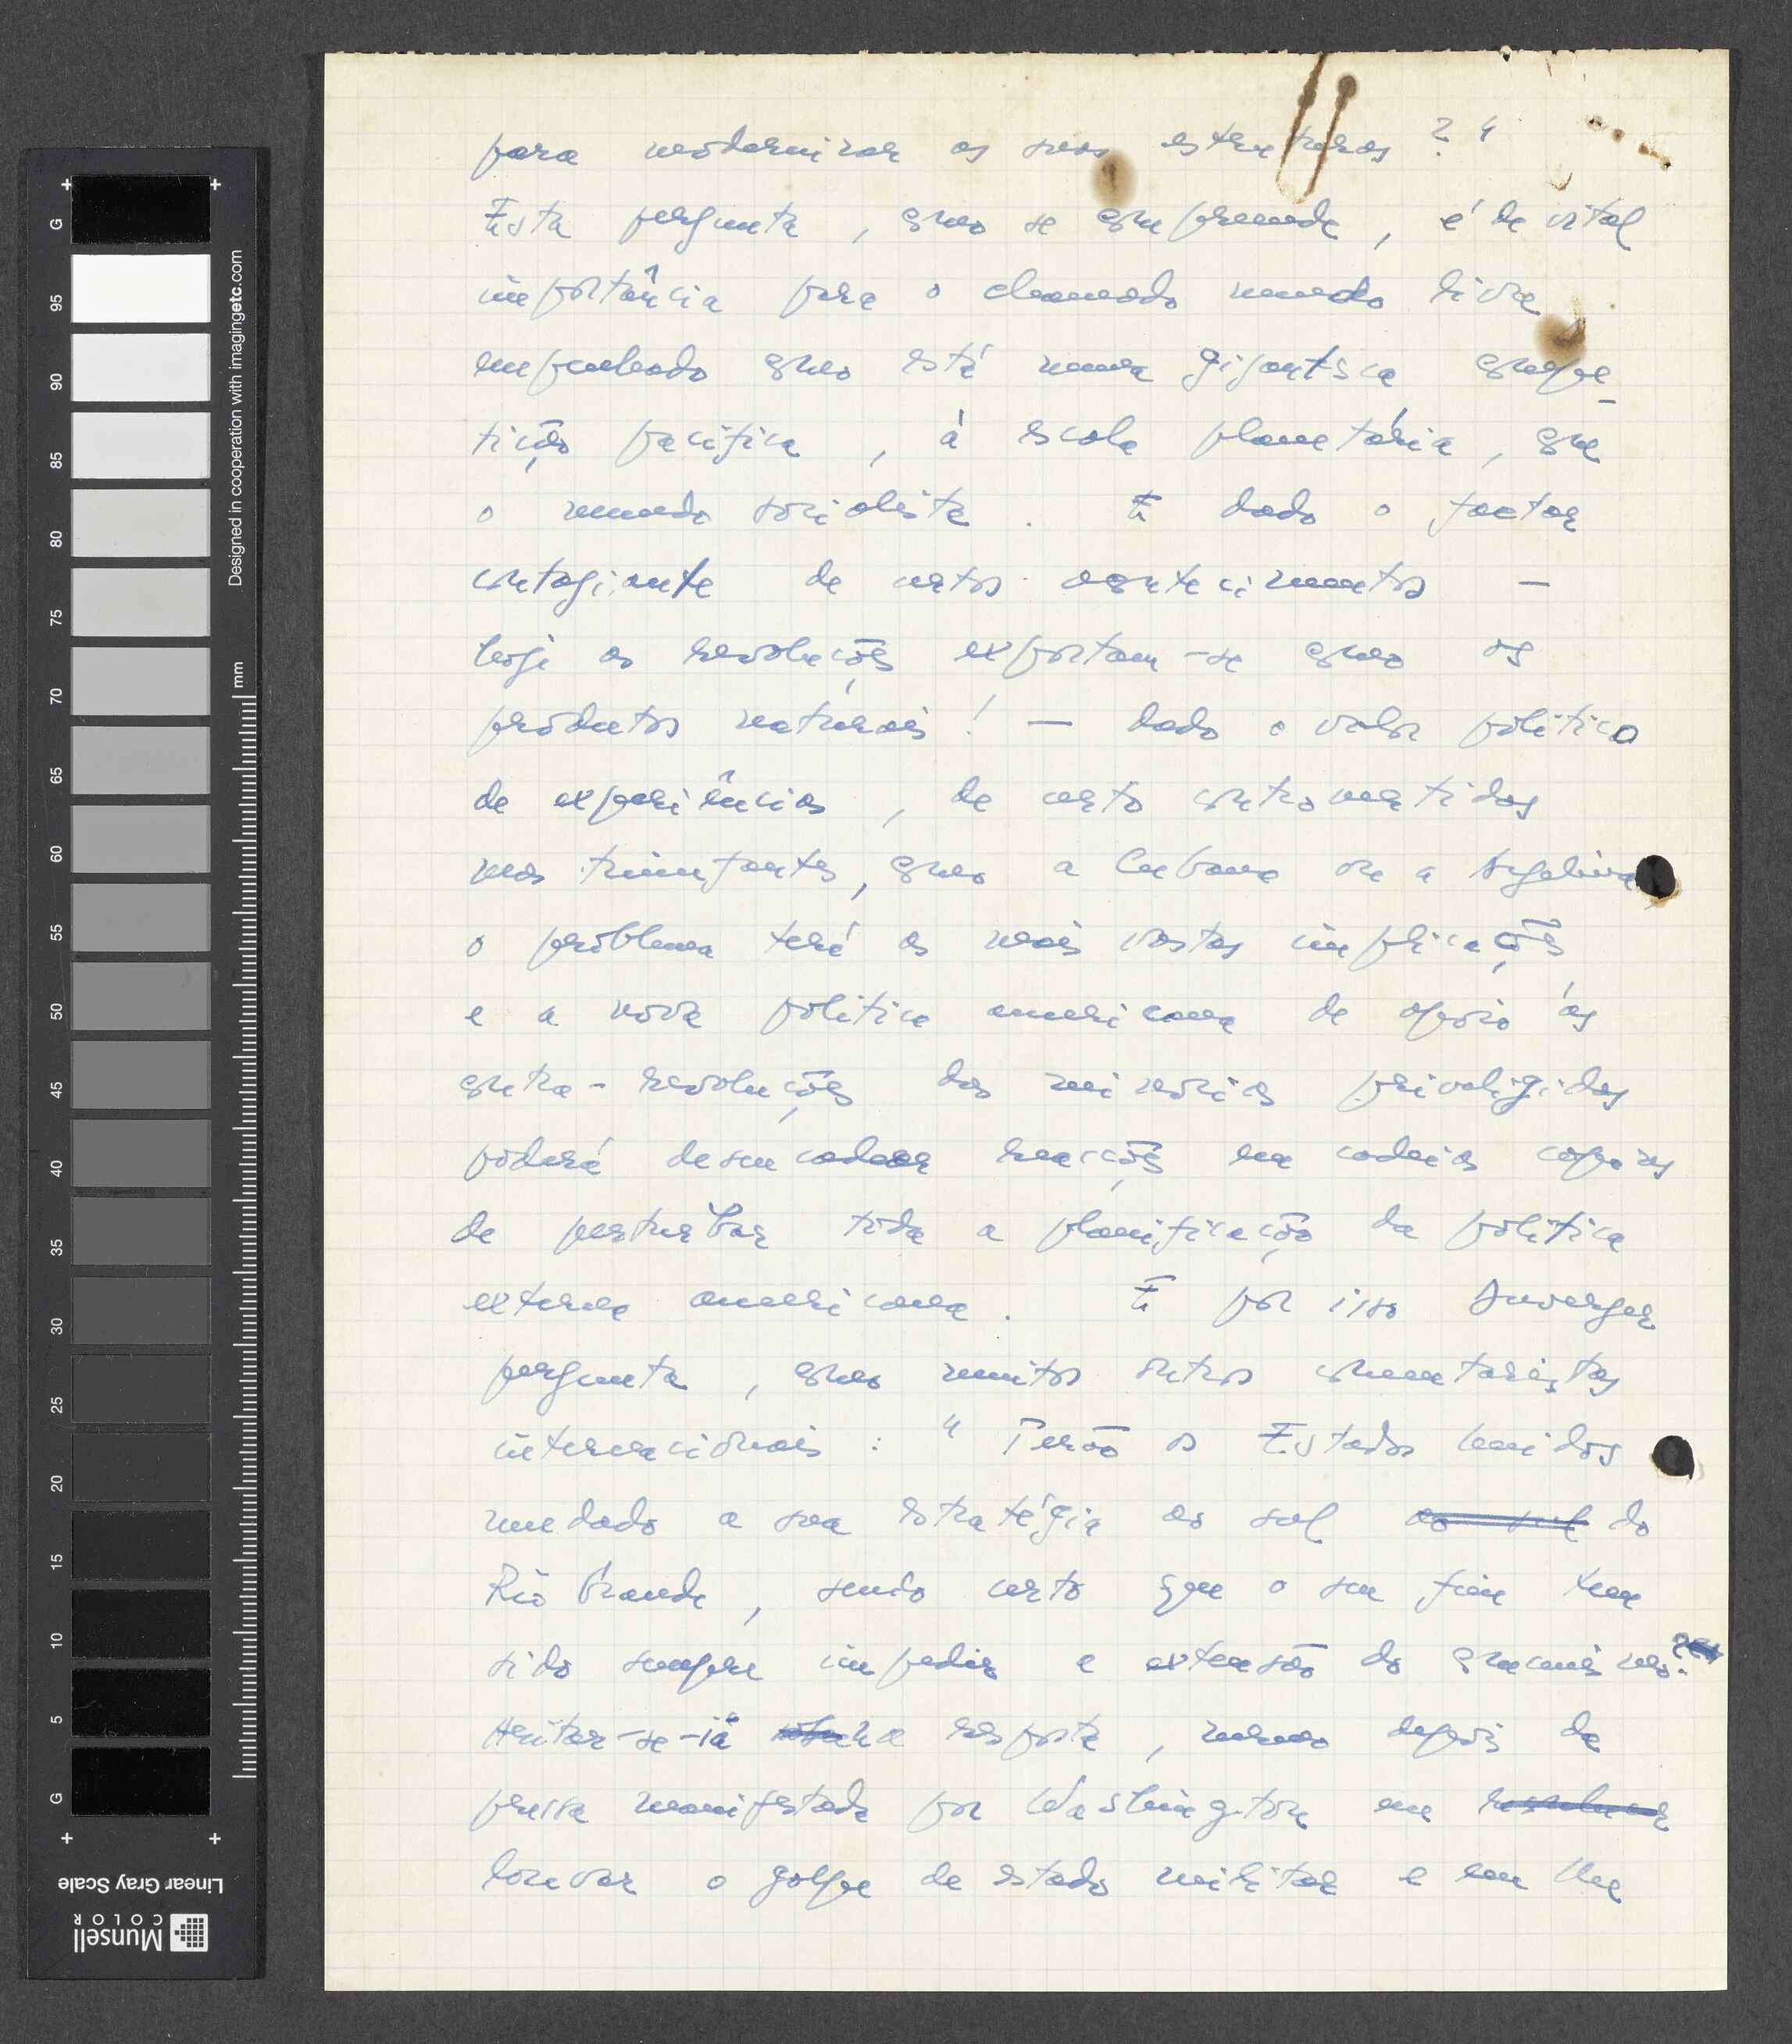 para modernizar as suas estruturas ? "
Esta pergunta , como se compreende , é de vital
importância para o chamado mundo livre
empenhado como está numa gigantesca compe-
tição pacífica , à escala planetária , com
o mundo socialista . E dado o factor
contagiante de certos acontecimentos –
hoje as revoluções exportam-se como os
produtos naturais ! – dado o valor político
de experiências , de certo controvertidas
mas triunfantes , como a Cubana ou a Argelina
o problema terá as mais vastas implicações
e a nova política americana de apoio às
contra-revoluções das minorias priveligidas
poderá desencadear reacções em cadeia capazes
de perturbar toda a planificação da política
externa americana . E por isso Duverger
pergunta , como muitos outros comentaristas
internacionais : " Terão os Estados Unidos
mudado a sua estratégia ao sul ao sul do
Rio Grande , sendo certo que o seu fim tem
sido sempre impedir a extensão do comunismo ?
-se-ia a resposta , mesmo depois da
pressa manifestada por Washington em
louvar o golpe de estado militar e em lhe
G 95 90 85 80 75 70 65 60 55 50 45 40 35 30 25 20 15 10 5 G
mm
Designed in cooperation with imagingetc.com
Linear Gray Scale
Munsell
COLOR